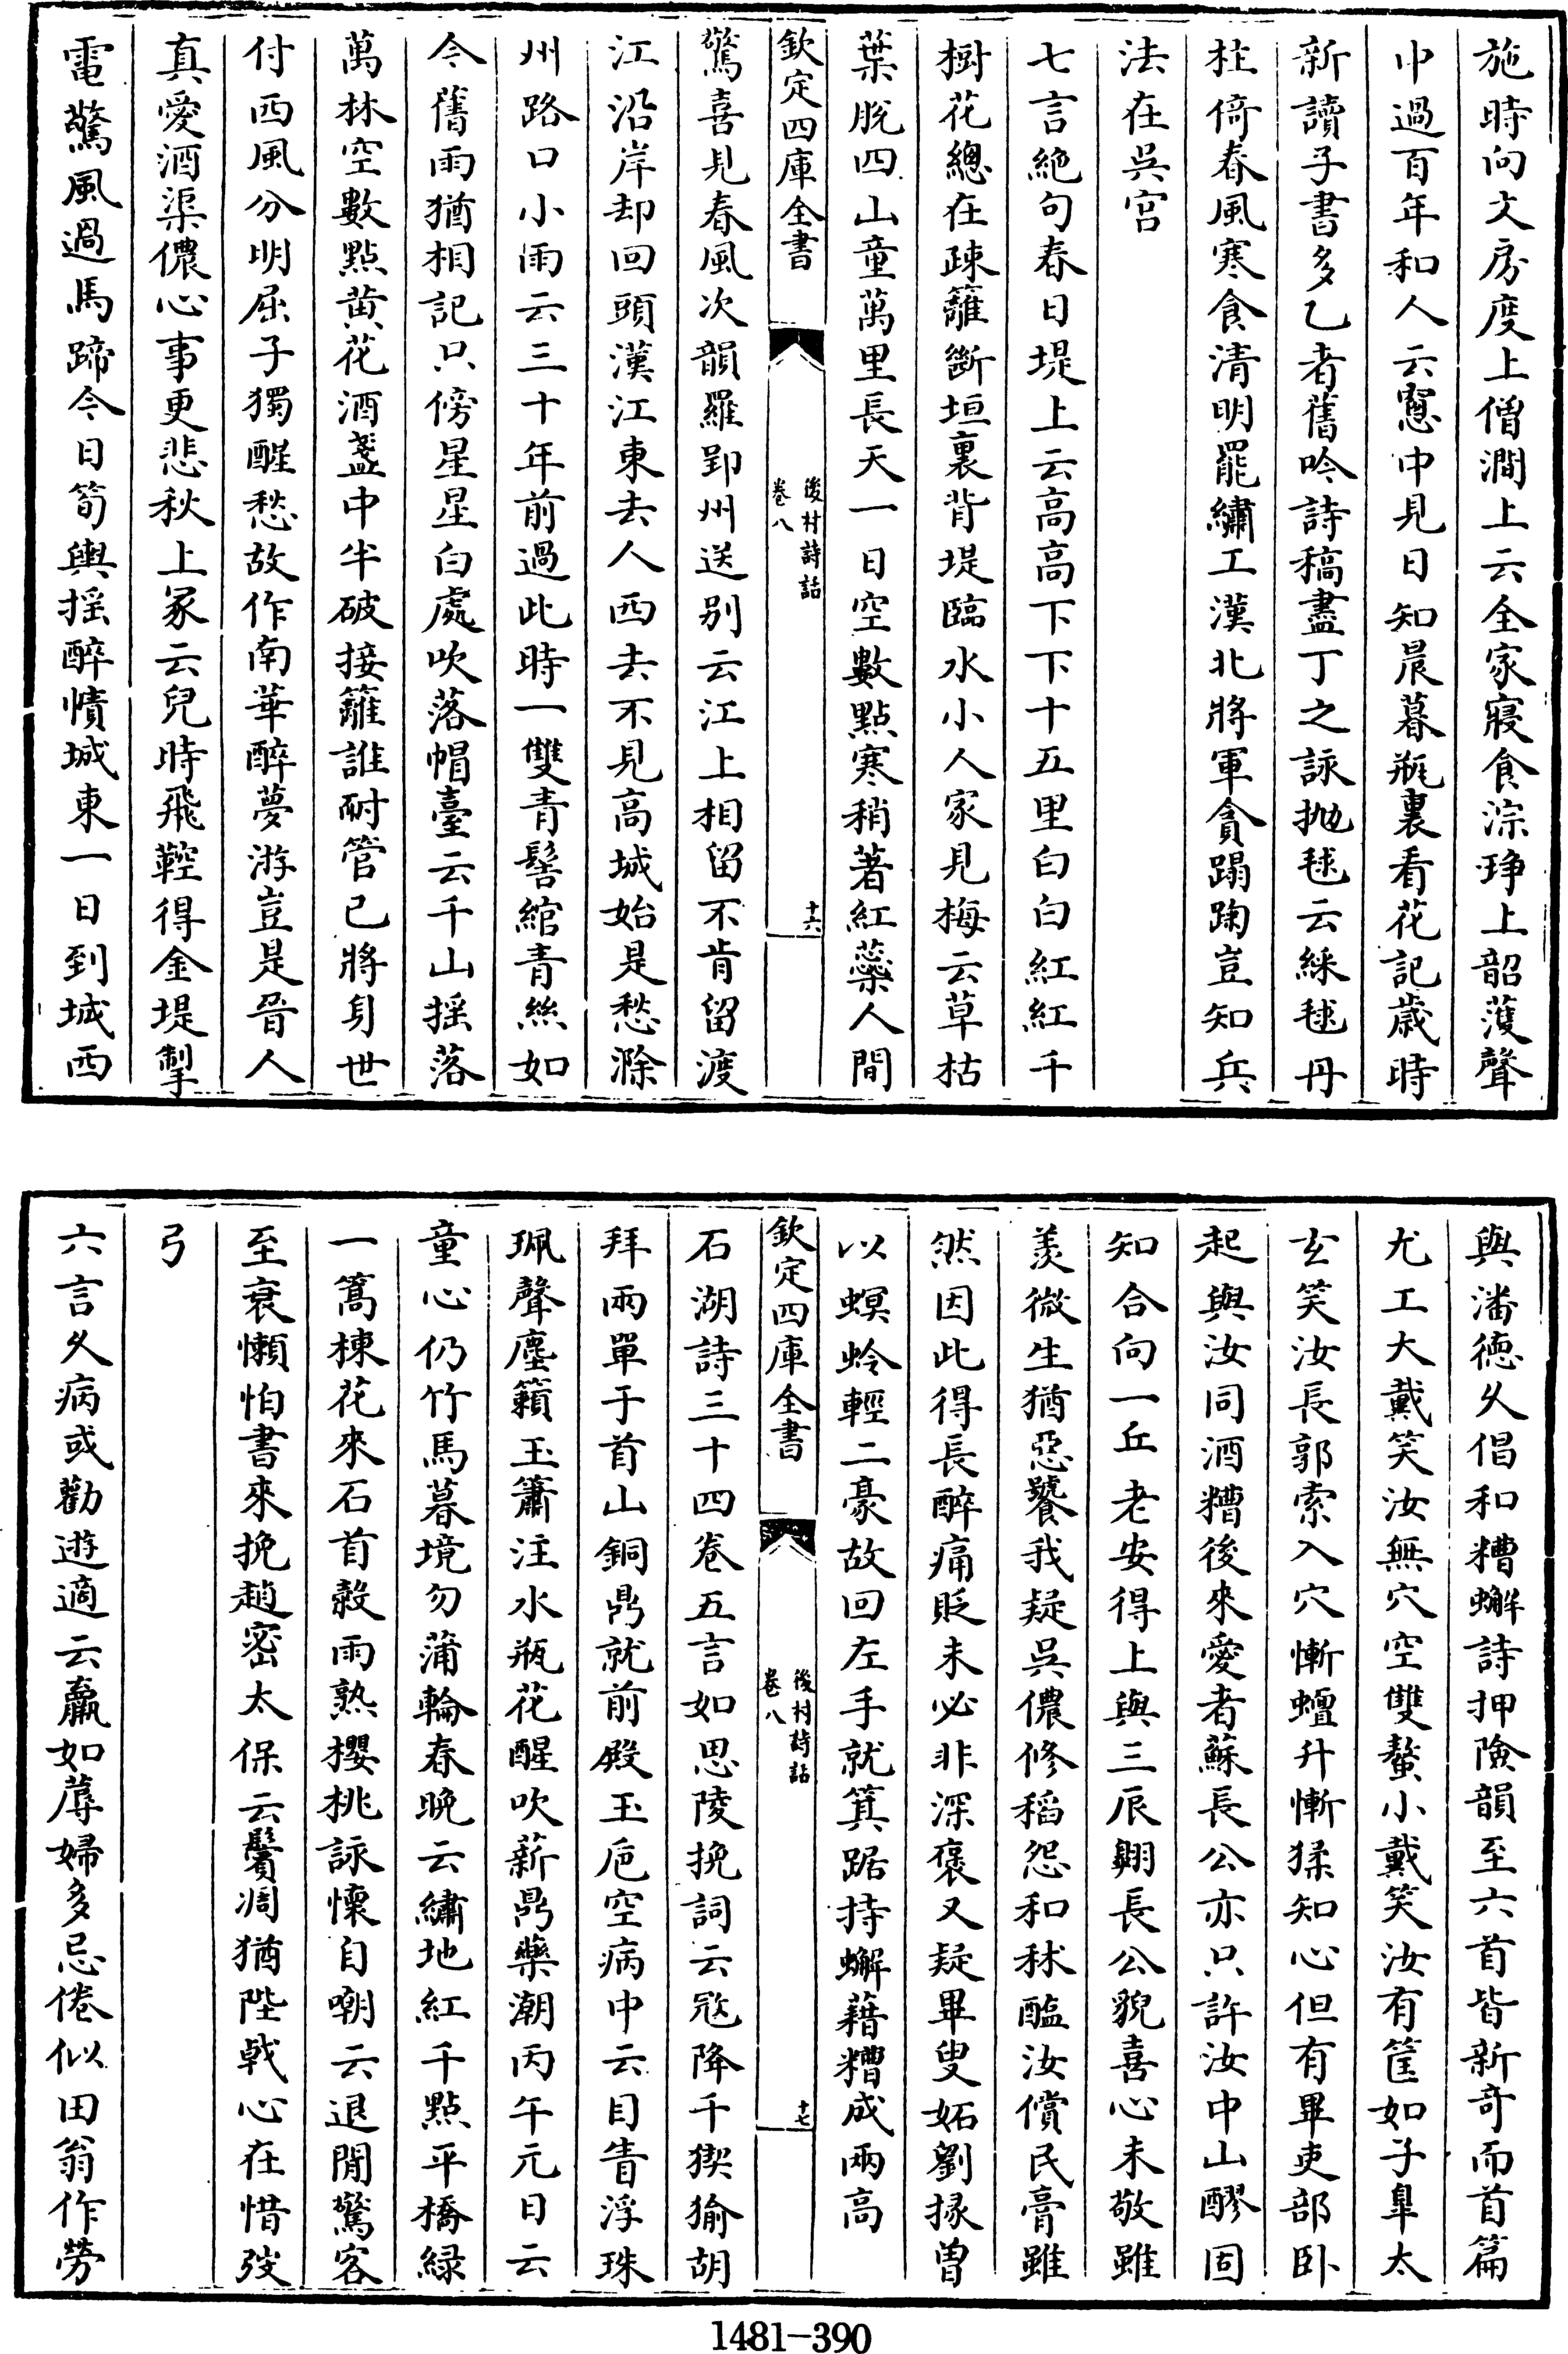 施時向文房度上僧澗上云全家寢食淙琤上韶䕶聲
中過百年和人云窻中見日知晨暮瓶裏看花記歳時
新讀子書多乙者舊吟詩稿盡丁之詠抛毬云綵毬丹
柱倚春風寒食清明罷繡工漢北將軍貪蹋踘豈知兵
法在吳宫
七言絶句春日堤上云高高下下十五里白白紅紅千
樹花總在疎籬斷垣裏背堤臨水小人家見梅云草枯
葉脫四山童萬里長天一日空數點寒稍著紅蘂人間
欽定四庫全書
後村詩話
卷八
十六
驚喜見春風次韻羅郢州送别云江上相留不肯留渡
江沿岸却回頭漢江東去人西去不見高城始是愁滁
州路口小雨云三十年前過此時一雙青髻綰青絲如
今舊雨猶相記只傍星星白處吹落帽臺云千山摇落
萬林空數點黄花酒盞中半破接籬誰耐管已將身世
付西風分明屈子獨醒愁故作南華醉夢游豈是晉人
真愛酒渠儂心事更悲秋上冢云兒時飛鞚得金堤掣
電驚風過馬蹄今日筍輿揺醉幘城東一日到城西
與潘徳久倡和糟蠏詩押險韻至六首皆新奇而首篇
尤工大戴笑汝無穴空雙螯小戴笑汝有筐如子臯太
玄笑汝長郭索入穴慚蟺升慚猱知心但有畢吏部卧
起與汝同酒糟後來愛者蘇長公亦只許汝中山醪固
知合向一丘老安得上與三辰翺長公貌喜心未敬雖
羡微生猶惡饕我疑吳儂修稻怨和秫醢汝償民膏雖
然因此得長醉痛貶未必非深褒又疑畢叟妬劉掾曽
以螟蛉輕二豪故回左手就箕踞持蠏藉糟成兩高
欽定四庫全書
後村詩話
卷八
十七
石湖詩三十四卷五言如思陵挽詞云寇降千猰㺄胡
拜兩單于首山銅鼎就前殿玉巵空病中云目眚浮珠
珮聲塵籟玉簫注水瓶花醒吹薪鼎藥潮丙午元日云
童心仍竹馬暮境勿蒲輪春晩云繡地紅千點平橋緑
一篙楝花來石首榖雨熟櫻桃詠懐自嘲云退閒驚客
至衰懶怕書來挽趙密太保云鬢凋猶陛㦸心在惜弢
弓
六言久病或勸逰適云羸如蓐婦多忌倦似田翁作勞
1481-390